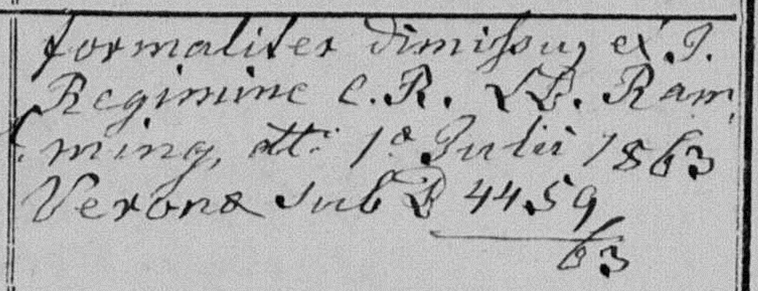 formaliter dimissus, ex I.
Regimine C. R. LB. Ram
ming, dtto 1a Julii 1863
Verona sub D 4459
63